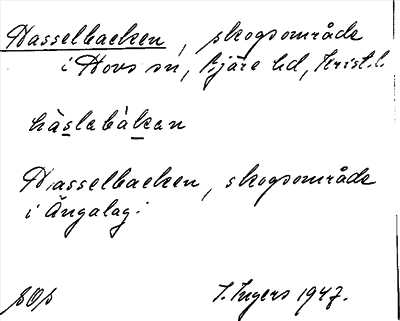 Hasselbacken, skogsområde
i Hovs sn, Bjäre hd, Krist. l.
hàslabàkan
Hasselbacken, skogsområde
i Ängalag.
SOs
I. Ingers 1947.